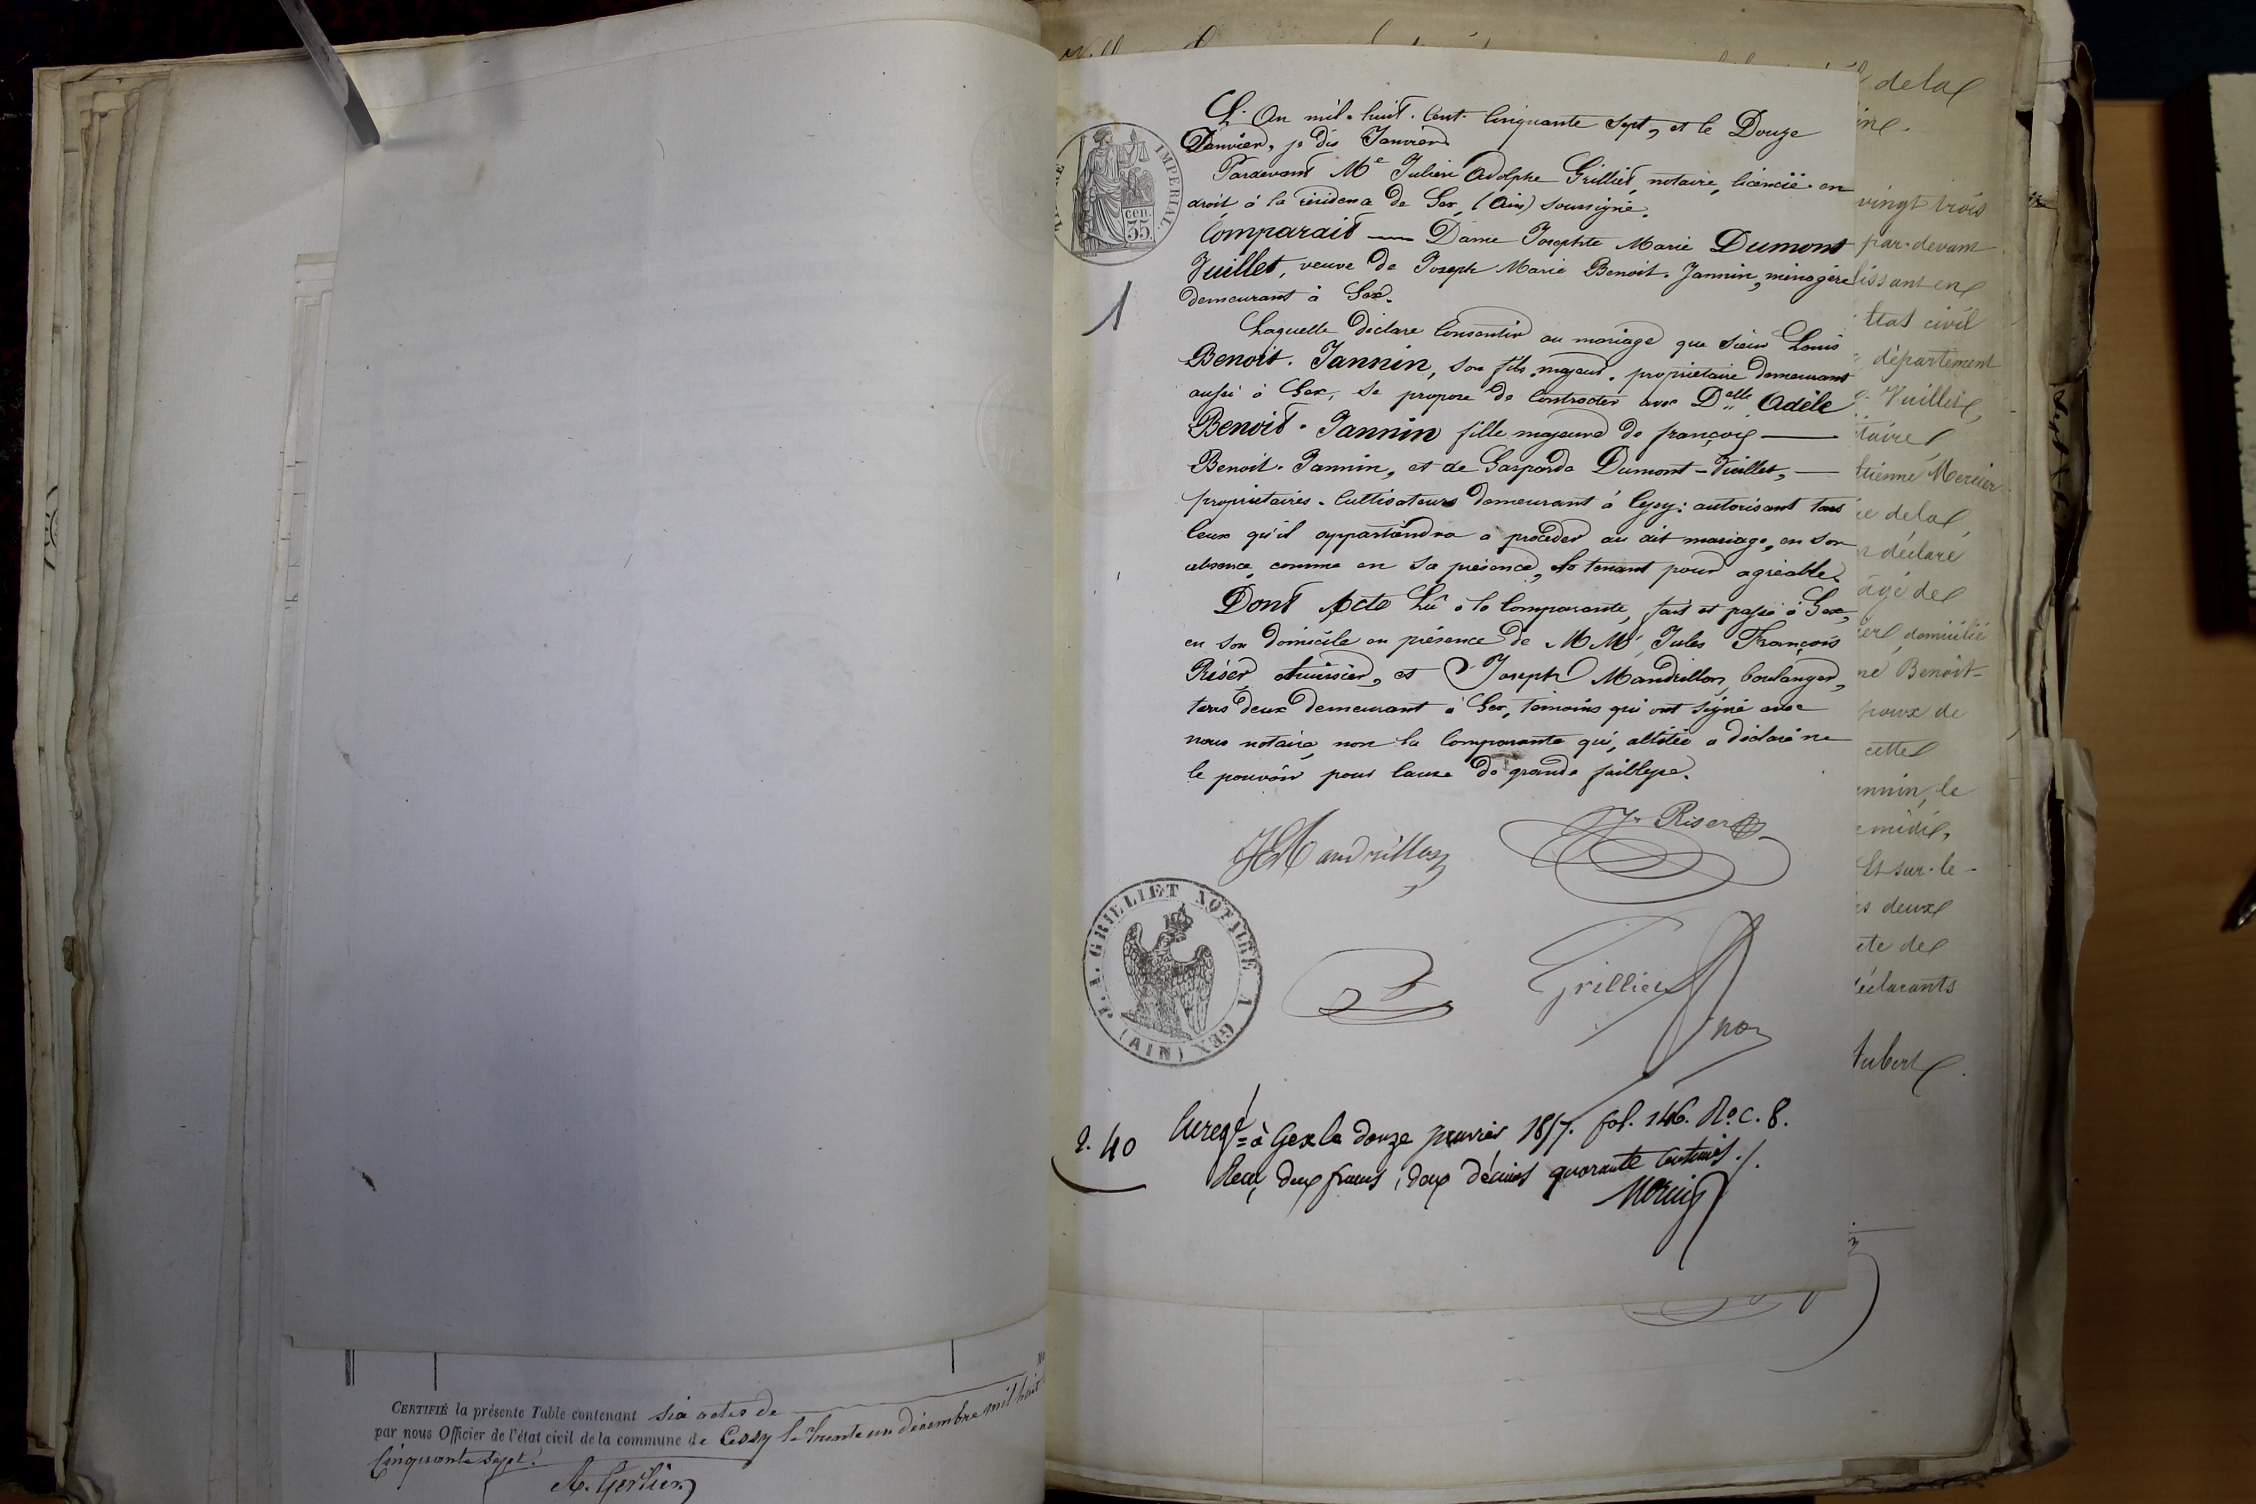 CERTIFIÉ la présente Table contenant six actes de
par nous Officier de l'état civil de la commune de Cessy le trente un décembre mil huit
Cinquante Sept.
A. Gerlier
TIMBRE IMPERIAL
cen.
35.
L'An mil-huit-Cent-Cinquante Sept, et le Douze
Janvier, je dis Janvier
Pardevant Me Julien Adolphe Grilliet, notaire, licencié en
droit à la résidence de Gex, (Ain) soussigné.
Comparait — Dame Josephte Marie Dumont
Vuillet, veuve de Joseph Marie Benoit-Jannin, ménagère
demeurant à Gex.
1
Laquelle déclare Consentir au mariage que sieur Louis
Benoit-Jannin, son fils majeur, propriétaire demeurant
aussi à Gex, se propose de Contracter avec Delle Adèle
Benoit-Jannin fille majeure de françois —
Benoit-Jannin, et de Gasparde Dumont-Vuillet, —
propriétaires-Cultivateurs demeurant à Cessy: autorisant tous
Ceux qu'il appartiendra a procéder au dit mariage, en son
absence, comme en sa présence, le tenant pour agréable.
Dont Acte Lu à la Comparante, fait et passé à Gex,
en son domicile en présence de M M. Jules François
Riser huissier, et Joseph Mandrillon, boulanger,
tous deux demeurant à Gex, témoins qui ont signé avec
nous notaire, non la Comparante qui, attitée a déclaré ne
le pouvoir pour Cause de grande faiblesse.
J Mandrillon
Jes Riser
J. A. GRILLIET NOTAIRE A GEX (AIN)
Grilliet
nore
2. 40
Enregé à Gex le douze janvier 1857. fol. 146. Ro. C. 8.
Recu deux francs, deux décimes quarante Centimes ./.
Mercier
de la
vingt trois
par-devant
département
Vuillet,
Etienne Mercier
de la
déclaré
âgé de
domicilié
Benoit-
cette
Et sur-le-
deux
de
déclarants